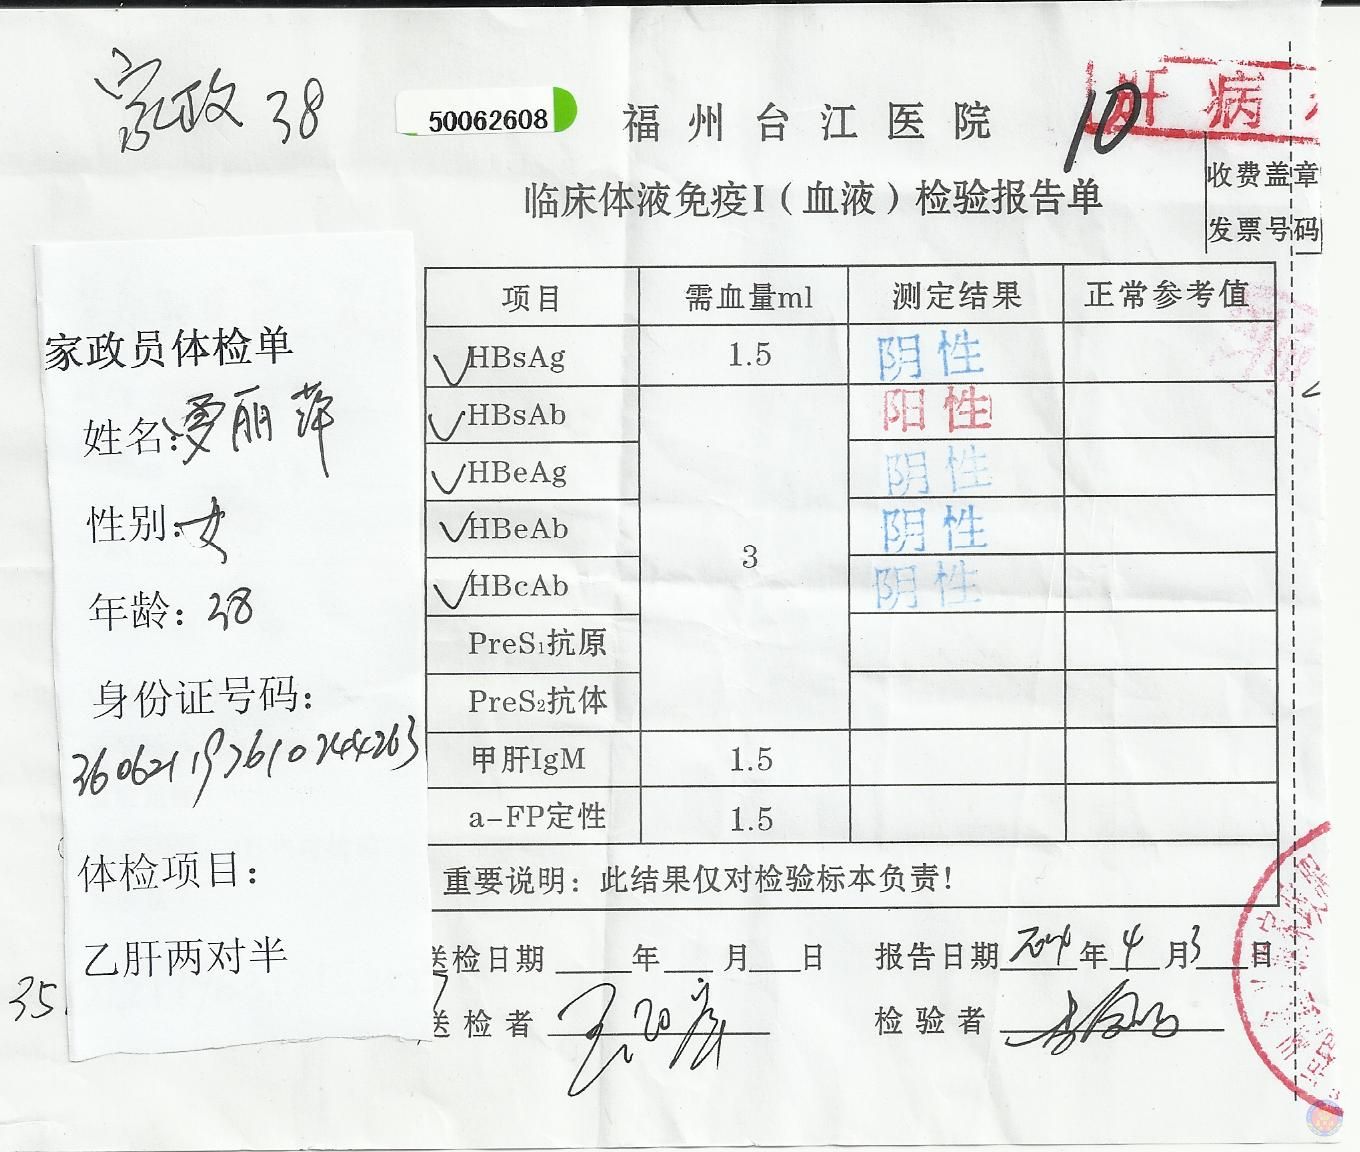 家政 38
50062608
福州台江医院
10
肝病
临床体液免疫I（血液）检验报告单
收费盖章
发票号码
家政员体检单
姓名:
丽萍
性别:女
年龄: 38
身份证号码:
体检项目:
乙肝两对半
35
项目 需血量ml 测定结果 正常参考值
HBsAg 1.5 阴性
HBsAb 阳性
HBeAg 阴性
HBeAb 3 阴性
HBcAb 阴性
PreS₁抗原
PreS₂抗体
甲肝IgM 1.5
a-FP定性 1.5
重要说明: 此结果仅对检验标本负责!
送检日期 年 月 日 报告日期 2014 年 4 月 3 日
送检者 检验者